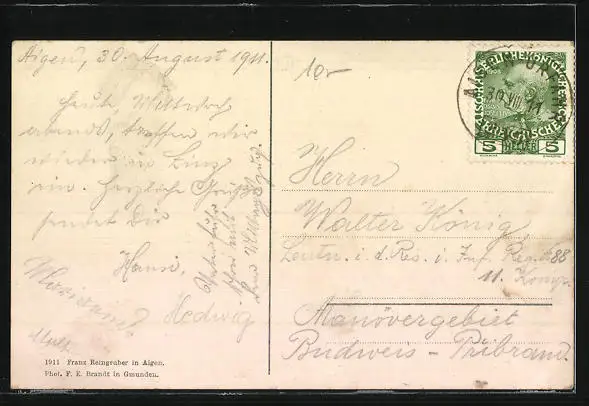 Aigen, 30. August 1911.
Heute, Mittwoch
abend, treffen wir
wieder in Linz
ein. Herzliche Grüße
sendet Dir
Hansi,
Hedwig
1911 Franz Reingruber in Aigen.
Phot. F. E. Brandt in Gmunden.
10.-
1908
5 HELLER 5
30.VIII.11
Herrn
Walter König,
Leutn. i. d. Res. i. Inf. Reg. № 88
11. Komp.
Manövergebiet
Budweis - Pribram.